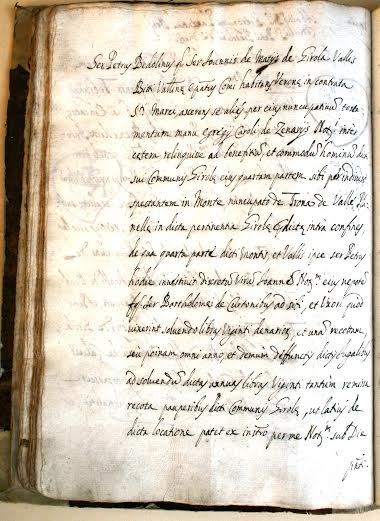 Ser Petrus Bedolinus q. Ser Joannis de Matijs de Girola Valles
habitans Verone in contrata
Sti Marci, asserens se alias per eius nuncupativum testa-
mentum manu Egregij Caroli de Notij inter
cetera relinquisse ad beneficium, et commodum hominum dicti
sui Communis Girole eius quartam partem sibi pro indiviso
spectantem in Monte nuncupato de Trona de Valle
nelle in dicta pertinentia Girole dicta intra confines,
de qua quarta parte dicti Montis et Vallis ipse Ser Petrus
hodie investivit discretum virum Joannem Notm eius nepotem
q. Ser Bartholomei de ad sui, et uxoris quoad
vixerint, solvendo libras viginti denariorum, et una
seu poinam omni anno, et demum defunctis dictis iugalibus
ad solvendum dictas annuas libras viginti tantum remissa
recota pauperibus dicti Communis Girole, ut latius de
dicta locatione patet ex instro per me Notm sub Die
pnti.